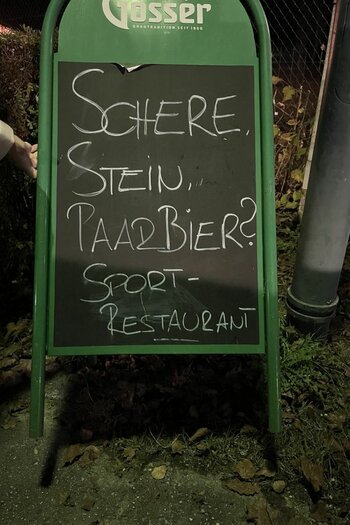 Gösser
BRAUTRADITION SEIT 1860
SCHERE,
STEIN,..
PAAR BIER?
SPORT-
RESTAURANT